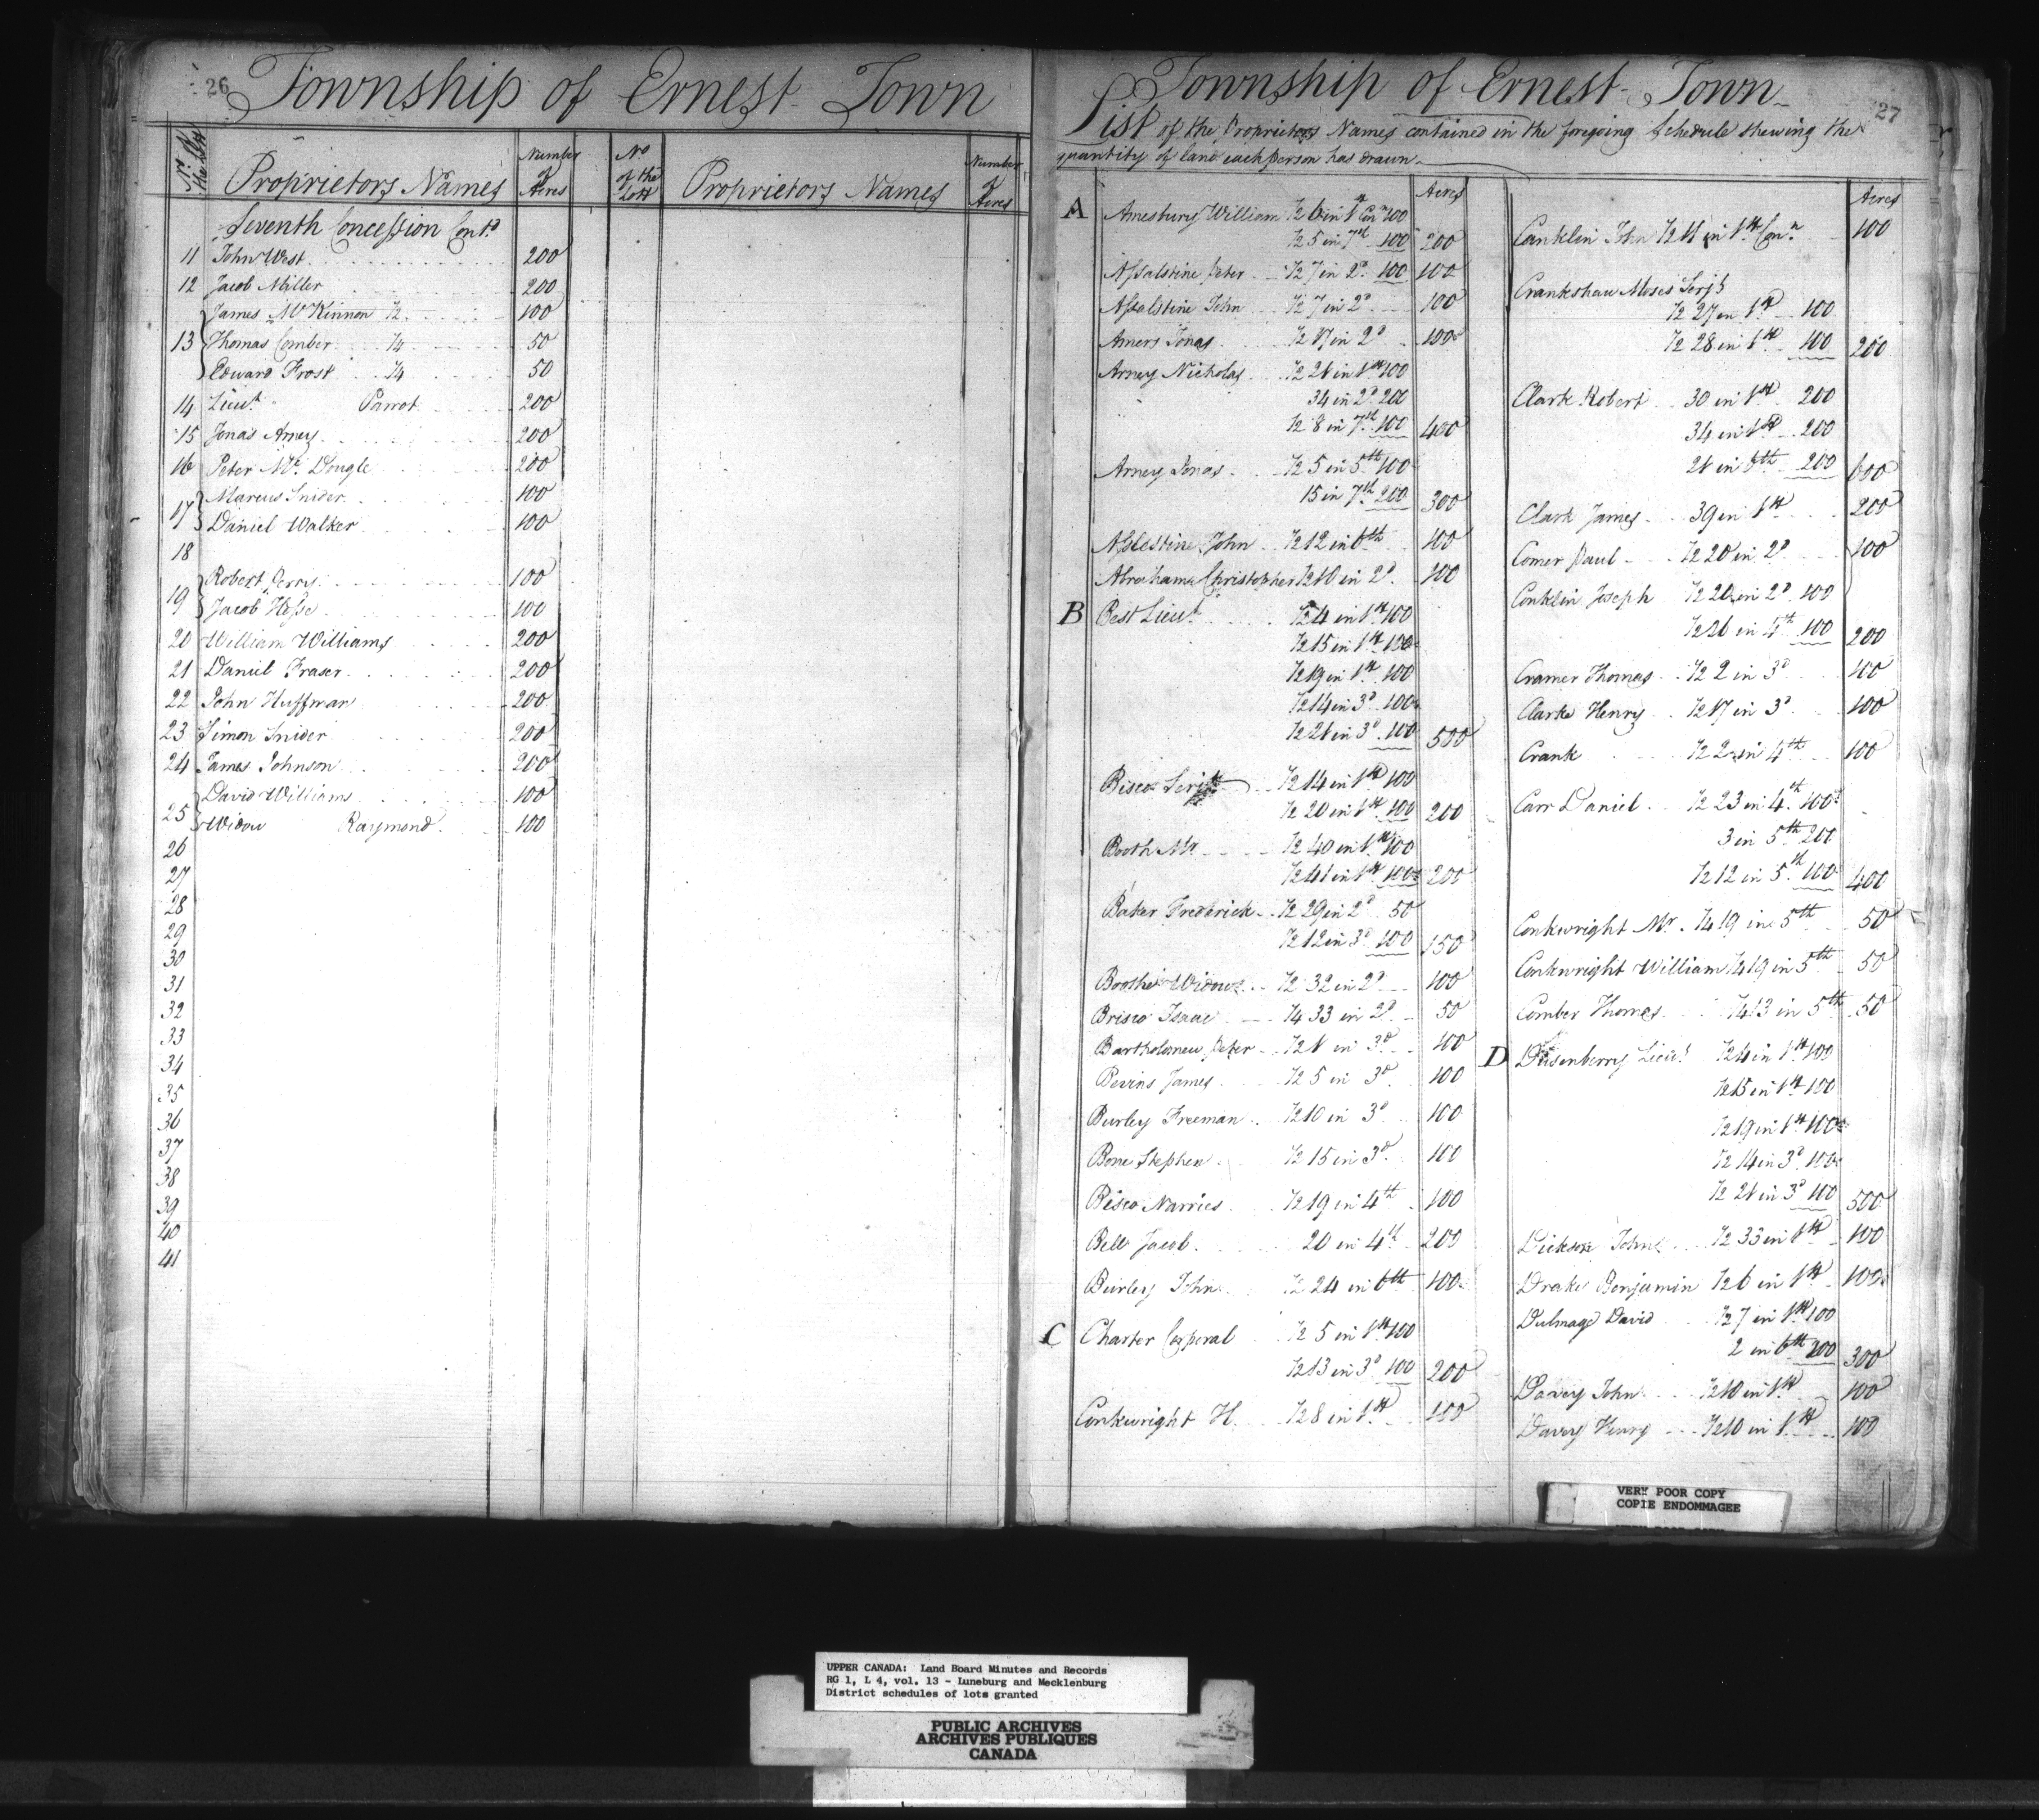 26
Township of Ernest Town
No. of the Lott
Proprietors Names
Number of Acres
No of the Lott
Proprietors Names
Number of Acres
Seventh Concession Contd
11 John West 200
12 Jacob Miller 200
James McKinnon ½ 100
13 Thomas Comber ¼ 50
Edward Frost ¼ 50
14 Lieut Parrot 200
15 Jonas Amey 200
16 Peter Mc Dougle 200
Marcus Snider 100
17 Daniel Walker 100
18
Robert Perry 100
19 Jacob Hesse 100
20 William Williams 200
21 Daniel Fraser 200
22 John Huffman 200
23 Simon Snider 200
24 James Johnson 200
David Williams 100
25 Widow Raymond 100
26
27
28
29
30
31
32
33
34
35
36
37
38
39
40
41
27
Township of Ernest Town
List of the Proprietors Names contained in the foregoing Schedule shewing the
quantity of land each person has drawn
Acres
A Amesbury William ½ 6 in 1st Conn 100
½ 5 in 7th 100 200
Assalstine Peter ½ 7 in 2d 100 100
Assalstine John ½ 7 in 2d 100
Amers Jonas ½ 17 in 2d 100
Arney Nicholas ½ 21 in 1st 100
34 in 2d 200
½ 8 in 7th 100 400
Arney Jonas ½ 5 in 5th 100
15 in 7th 200 300
Asslestine John ½ 12 in 6th 100
Abrahams Christopher ½ 10 in 2d 100
B Best Lieut ½ 4 in 1st 100
½ 15 in 1st 100
½ 19 in 1st 100
½ 14 in 3d 100
½ 21 in 3d 100 500
Bisco Serjt ½ 14 in 1st 100
½ 20 in 1st 100 200
Booth Mr ½ 40 in 1st 100
½ 41 in 1st 100 200
Baker Frederick ½ 29 in 2d 50
½ 12 in 3d 100 150
Boothe Widow ½ 32 in 2d 100
Brisco Isaac ¼ 33 in 2d 50
Bartholomew Peter ½ 1 in 3d 100
Bevins James ½ 5 in 3d 100
Burley Freeman ½ 10 in 3d 100
Bone Stephen ½ 15 in 3d 100
Bisco Narries ½ 19 in 4th 100
Bell Jacob 20 in 4th 200
Burley John ½ 24 in 6th 100
C Charter Corporal ½ 5 in 1st 100
½ 13 in 3d 100 200
Conkwright H. ½ 8 in 1st 100
Acres
Canklin John ½ 11 in 1st Conn 100
Crankshaw Moses Serjt
½ 27 in 1st 100
½ 28 in 1st 100 200
Clark Robert 30 in 1st 200
34 in 1st 200
21 in 6th 200 600
Clark James 39 in 1st 200
Comer Paul ½ 20 in 2d 100
Conklin Joseph ½ 20 in 2d 100
½ 26 in 4th 100 200
Cramer Thomas ½ 2 in 3d 100
Clarke Henry ½ 17 in 3d 100
Crank ½ 2 in 4th 100
Carr Daniel ½ 23 in 4th 100
3 in 5th 200
½ 12 in 5th 100 400
Conkwright Mr. ¼ 19 in 5th 50
Conkwright William ¼ 19 in 5th 50
Comber Thomas ¼ 13 in 5th 50
D Dusenberry Lieut ½ 4 in 1st 100
½ 15 in 1st 100
½ 19 in 1st 100
½ 14 in 3d 100
½ 21 in 3d 100 500
Dickson John ½ 33 in 1st 100
Drake Benjamin ½ 6 in 1st 100
Dulmage David ½ 7 in 1st 100
2 in 6th 200 300
Davey John ½ 10 in 1st 100
Davey Henry ½ 10 in 1st 100
VERY POOR COPY
COPIE ENDOMMAGEE
UPPER CANADA: Land Board Minutes and Records
RG 1, L 4, vol. 13 - Luneburg and Mecklenburg
District schedules of lots granted
PUBLIC ARCHIVES
ARCHIVES PUBLIQUES
CANADA